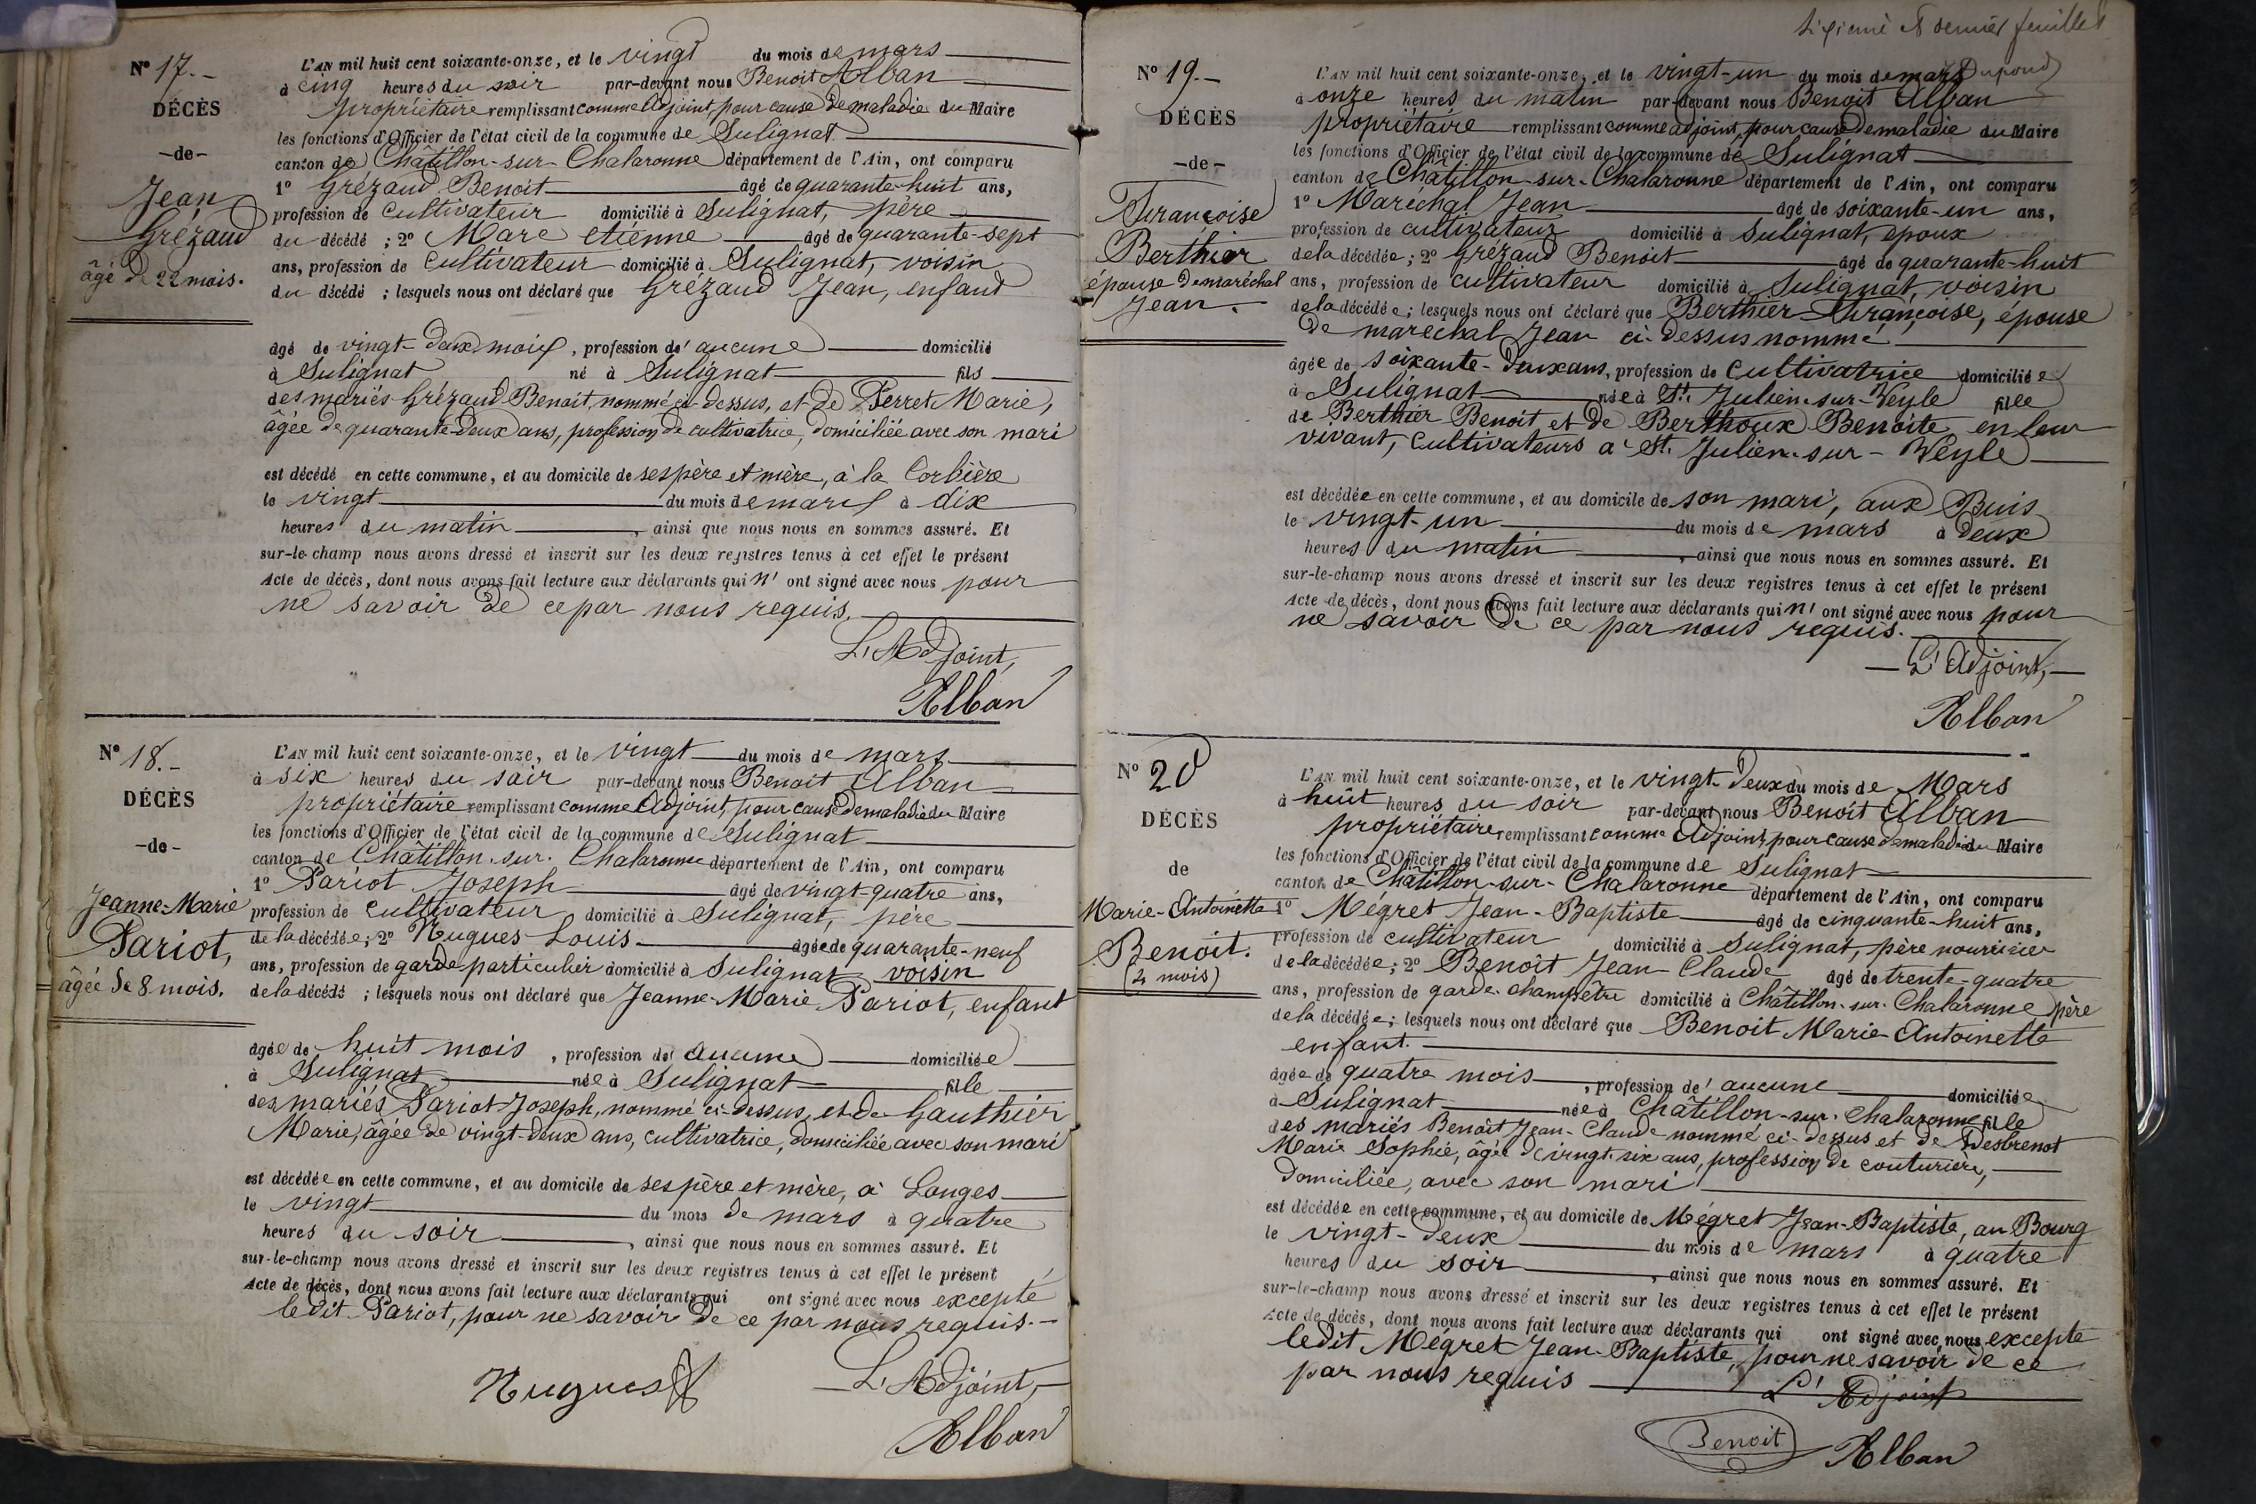 Nº 17.-
DÉCÈS
-de-
Jean
Grézaud
âgé de 22 mois.
L'AN mil huit cent soixante-onze, et le vingt du mois de mars
à cinq heures du soir par-devant nous Benoit Alban
propriétaire remplissant comme Adjoint, pour cause de maladie du Maire
les fonctions d'Officier de l'état civil de la commune de Sulignat
canton de Châtillon-sur-Chalaronne département de l'Ain, ont comparu
1º Grézaud Benoit âgé de quarante-huit ans,
profession de cultivateur domicilié à Sulignat, père
du décédé ; 2º Marc etienne âgé de quarante-sept
ans, profession de cultivateur domicilié à Sulignat, voisin
du décédé ; lesquels nous ont déclaré que Grézaud Jean, enfant
âgé de vingt-deux mois, profession de aucune domicilié
à Sulignat né à Sulignat fils
des mariés Grézaud Benoit, nommé ci-dessus, et de Perret Marie,
âgée de quarante-deux ans, profession de cultivatrice, domiciliée avec son mari
est décédé en cette commune, et au domicile de ses père et mère, à la Corbière
le vingt du mois de mars à dix
heures du matin, ainsi que nous nous en sommes assuré. Et
sur-le-champ nous avons dressé et inscrit sur les deux registres tenus à cet effet le présent
Acte de décès, dont nous avons fait lecture aux déclarants qui n' ont signé avec nous pour
ne savoir de ce par nous requis.
L'Adjoint,
Alban
Nº 18.-
DÉCÈS
-de-
Jeanne-Marie
Pariot,
âgée de 8 mois.
L'AN mil huit cent soixante-onze, et le vingt du mois de mars
à six heures du soir par-devant nous Benoit Alban
propriétaire remplissant comme Adjoint, pour cause de maladie du Maire
les fonctions d'Officier de l'état civil de la commune de Sulignat
canton de Châtillon-sur-Chalaronne département de l'Ain, ont comparu
1º Pariot Joseph âgé de vingt-quatre ans,
profession de cultivateur domicilié à Sulignat, père
de la décédée; 2º Hugues Louis âgé de quarante-neuf
ans, profession de garde-particulier domicilié à Sulignat voisin
de la décédé ; lesquels nous ont déclaré que Jeanne-Marie Pariot, enfant
âgée de huit mois, profession de aucune domiciliée
à Sulignat née à Sulignat fille
des mariés Pariot Joseph, nommé ci-dessus, et de Gauthier
Marie, âgée de vingt-deux ans, cultivatrice, domiciliée avec son mari
est décédée en cette commune, et au domicile de ses père et mère, à Longes
le vingt du mois de mars à quatre
heures du soir, ainsi que nous nous en sommes assuré. Et
sur-le-champ nous avons dressé et inscrit sur les deux registres tenus à cet effet le présent
Acte de décès, dont nous avons fait lecture aux déclarants qui ont signé avec nous excepté
ledit Pariot, pour ne savoir de ce par nous requis.-
L'Adjoint,
Hugues
Alban
dernier feuillet
Dupond
Nº 19.-
DÉCÈS
-de-
Françoise
Berthier
épouse de maréchal
Jean.
L'AN mil huit cent soixante-onze, et le vingt-un du mois de mars
à onze heures du matin par-devant nous Benoit Alban
propriétaire remplissant comme adjoint, pour cause de maladie du Maire
les fonctions d'Officier de l'état civil de la commune de Sulignat
canton de Châtillon-sur-Chalaronne département de l'Ain, ont comparu
1º Maréchal Jean âgé de soixante-un ans,
profession de cultivateur domicilié à Sulignat, époux
de la décédée; 2º Grézaud Benoit âgé de quarante-huit
ans, profession de cultivateur domicilié à Sulignat, voisin
de la décédée; lesquels nous ont déclaré que Berthier Françoise, épouse
de maréchal Jean ci-dessus nommé
âgée de soixante-deux ans, profession de cultivatrice domiciliée
à Sulignat née à St. Julien-sur-Veyle fille
de Berthier Benoit et de Berthoux Benoite, en leur
vivant, cultivateurs à St. Julien-sur-Veyle
est décédée en cette commune, et au domicile de son mari, aux Buis
le vingt-un du mois de mars à deux
heures du matin, ainsi que nous nous en sommes assuré. Et
sur-le-champ nous avons dressé et inscrit sur les deux registres tenus à cet effet le présent
Acte de décès, dont nous avons fait lecture aux déclarants qui n' ont signé avec nous pour
ne savoir de ce par nous requis.
L'Adjoint,
Alban
Nº 20
DÉCÈS
de
Marie-Antoinette
Benoit.
(4 mois)
L'AN mil huit cent soixante-onze, et le vingt-deux du mois de Mars
à huit heures du soir par-devant nous Benoit Alban
propriétaire remplissant comme Adjoint, pour cause de maladie du Maire
les fonctions d'Officier de l'état civil de la commune de Sulignat
canton de Châtillon-sur-Chalaronne département de l'Ain, ont comparu
1º Mégret Jean-Baptiste âgé de cinquante-huit ans,
profession de cultivateur domicilié à Sulignat, père nouricier
de la décédée; 2º Benoît Jean-Claude âgé de trente-quatre
ans, profession de garde-champêtre domicilié à Châtillon-sur-Chalaronne père
de la décédée; lesquels nous ont déclaré que Benoit Marie-Antoinette
enfant.
âgée de quatre mois, profession de aucune domiciliée
à Sulignat née à Châtillon-sur-Chalaronne fille
des mariés Benoît Jean-Claude nommé ci-dessus et de Desbrenot
Marie Sophie, âgée de vingt-six ans, profession de couturière,
domiciliée, avec son mari
est décédée en cette commune, et au domicile de Mégret Jean-Baptiste, au Bourg
le vingt-deux du mois de mars à quatre
heures du soir, ainsi que nous nous en sommes assuré. Et
sur-le-champ nous avons dressé et inscrit sur les deux registres tenus à cet effet le présent
Acte de décès, dont nous avons fait lecture aux déclarants qui ont signé avec nous excepté
ledit Mégret Jean-Baptiste, pour ne savoir de ce
par nous requis
L'Adjoint
Benoit
Alban